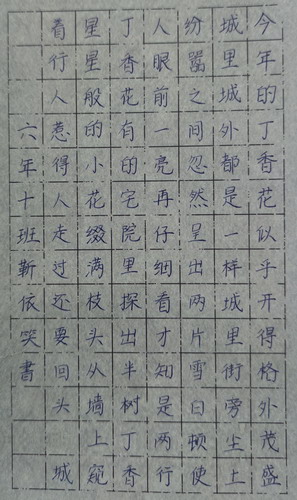 今年的丁香花似乎开得格外茂盛
城里城外都是一样城里街旁尘上
纷嚣之间忽然呈出两片雪白顿使
人眼前一亮再仔细看才知是两行
丁香花有的宅院里探出半树丁香
星星般的小花缀满枝头从墙上窥
着行人惹得人走过还要回头 城
六年十班靳依笑書